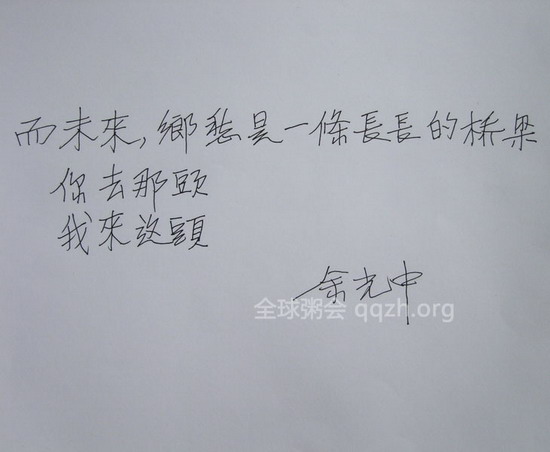 而未來，鄉愁是一條長長的桥梁
你去那頭
我來这頭
余光中
全球粥会 qqzh.org